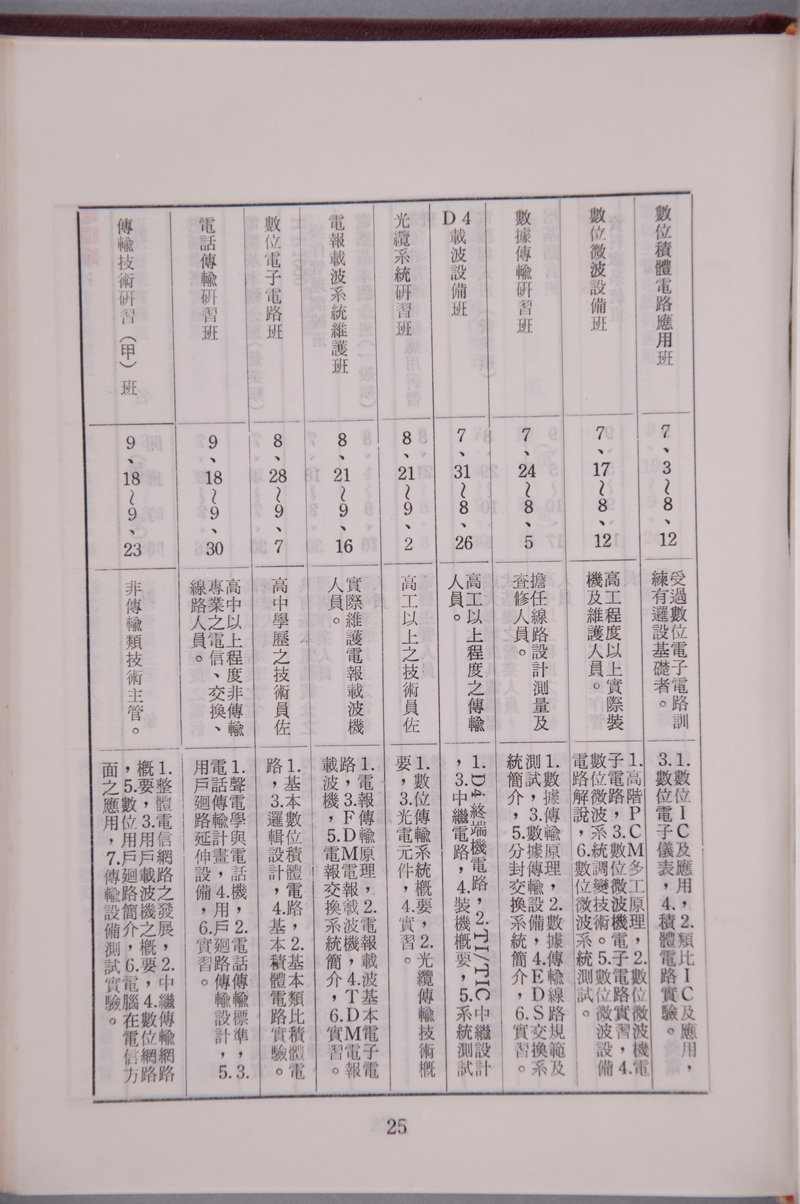 數位積體電路應用班
7、3～8、12
受過數位電子電路訓
練有邏設基礎者。
1.數位IC及應用，2.類比IC及應用，
3.數位電子儀表，4.積體電路實驗。
數位微波設備班
7、17～8、12
高工程度以上實際裝
機及維護人員。
1.高階PCM多工原理，2.數位微波機電
子電路，3.數位微波機電子電路實習，4.
數位微波系統調變技術。5.數位微波設備
電路解說，6.數位微波系統測試。
數據傳輸研習班
7、24～8、5
擔任線路設計測量及
查修人員。
1.數據傳輸原理，2.數據傳輸線路規範及
測試，3.數據傳輸設備，4.EDS交換系
統簡介，5.分封交換系統簡介，6.實習。
D4載波設備班
7、31～8、26
高工以上程度之傳輸
人員。
1.D4終端機電路，2.TI/TIC中繼設計
，3.中繼電路，4.裝機概要，5.系統測試
光纜系統研習班
8、21～9、2
高工以上之技術員佐
1.數位傳輸系統概要，2.光纜傳輸技術概
要，3.光電元件，4.實習。
電報載波系統維護班
8、21～9、16
實際維護電報載波機
人員。
1.電報傳輸原理，2.電報載波基本電子電
路，3.FDM電報載波機，4.TDM電報
載波機，5.電報交換系統簡介，6.實習。
數位電子電路班
8、28～9、7
高中學歷之技術員佐
1.基本數位積體電路，2.基本類比積體電
路，3.邏輯設計，4.基本積體電路實驗。
電話傳輸研習班
9、18～9、30
高中以上程度非傳輸
專業之電信、交換、
線路人員。
1.聲電學與電話機，2.電話傳輸標準，3.
電話傳輸計畫，4.用戶迴路傳輸設計，5.
用戶迴路延伸設備，6.實習。
傳輸技術研習（甲）班
9、18～9、23
非傳輸類技術主管。
1.整體電信網路之發展，2.中繼傳輸網路
概要，3.用戶載波機之概要，4.數位網路
，5.數位用戶迴路簡介，6.電腦在電信方
面之應用，7.傳輸設備測試實驗。
25